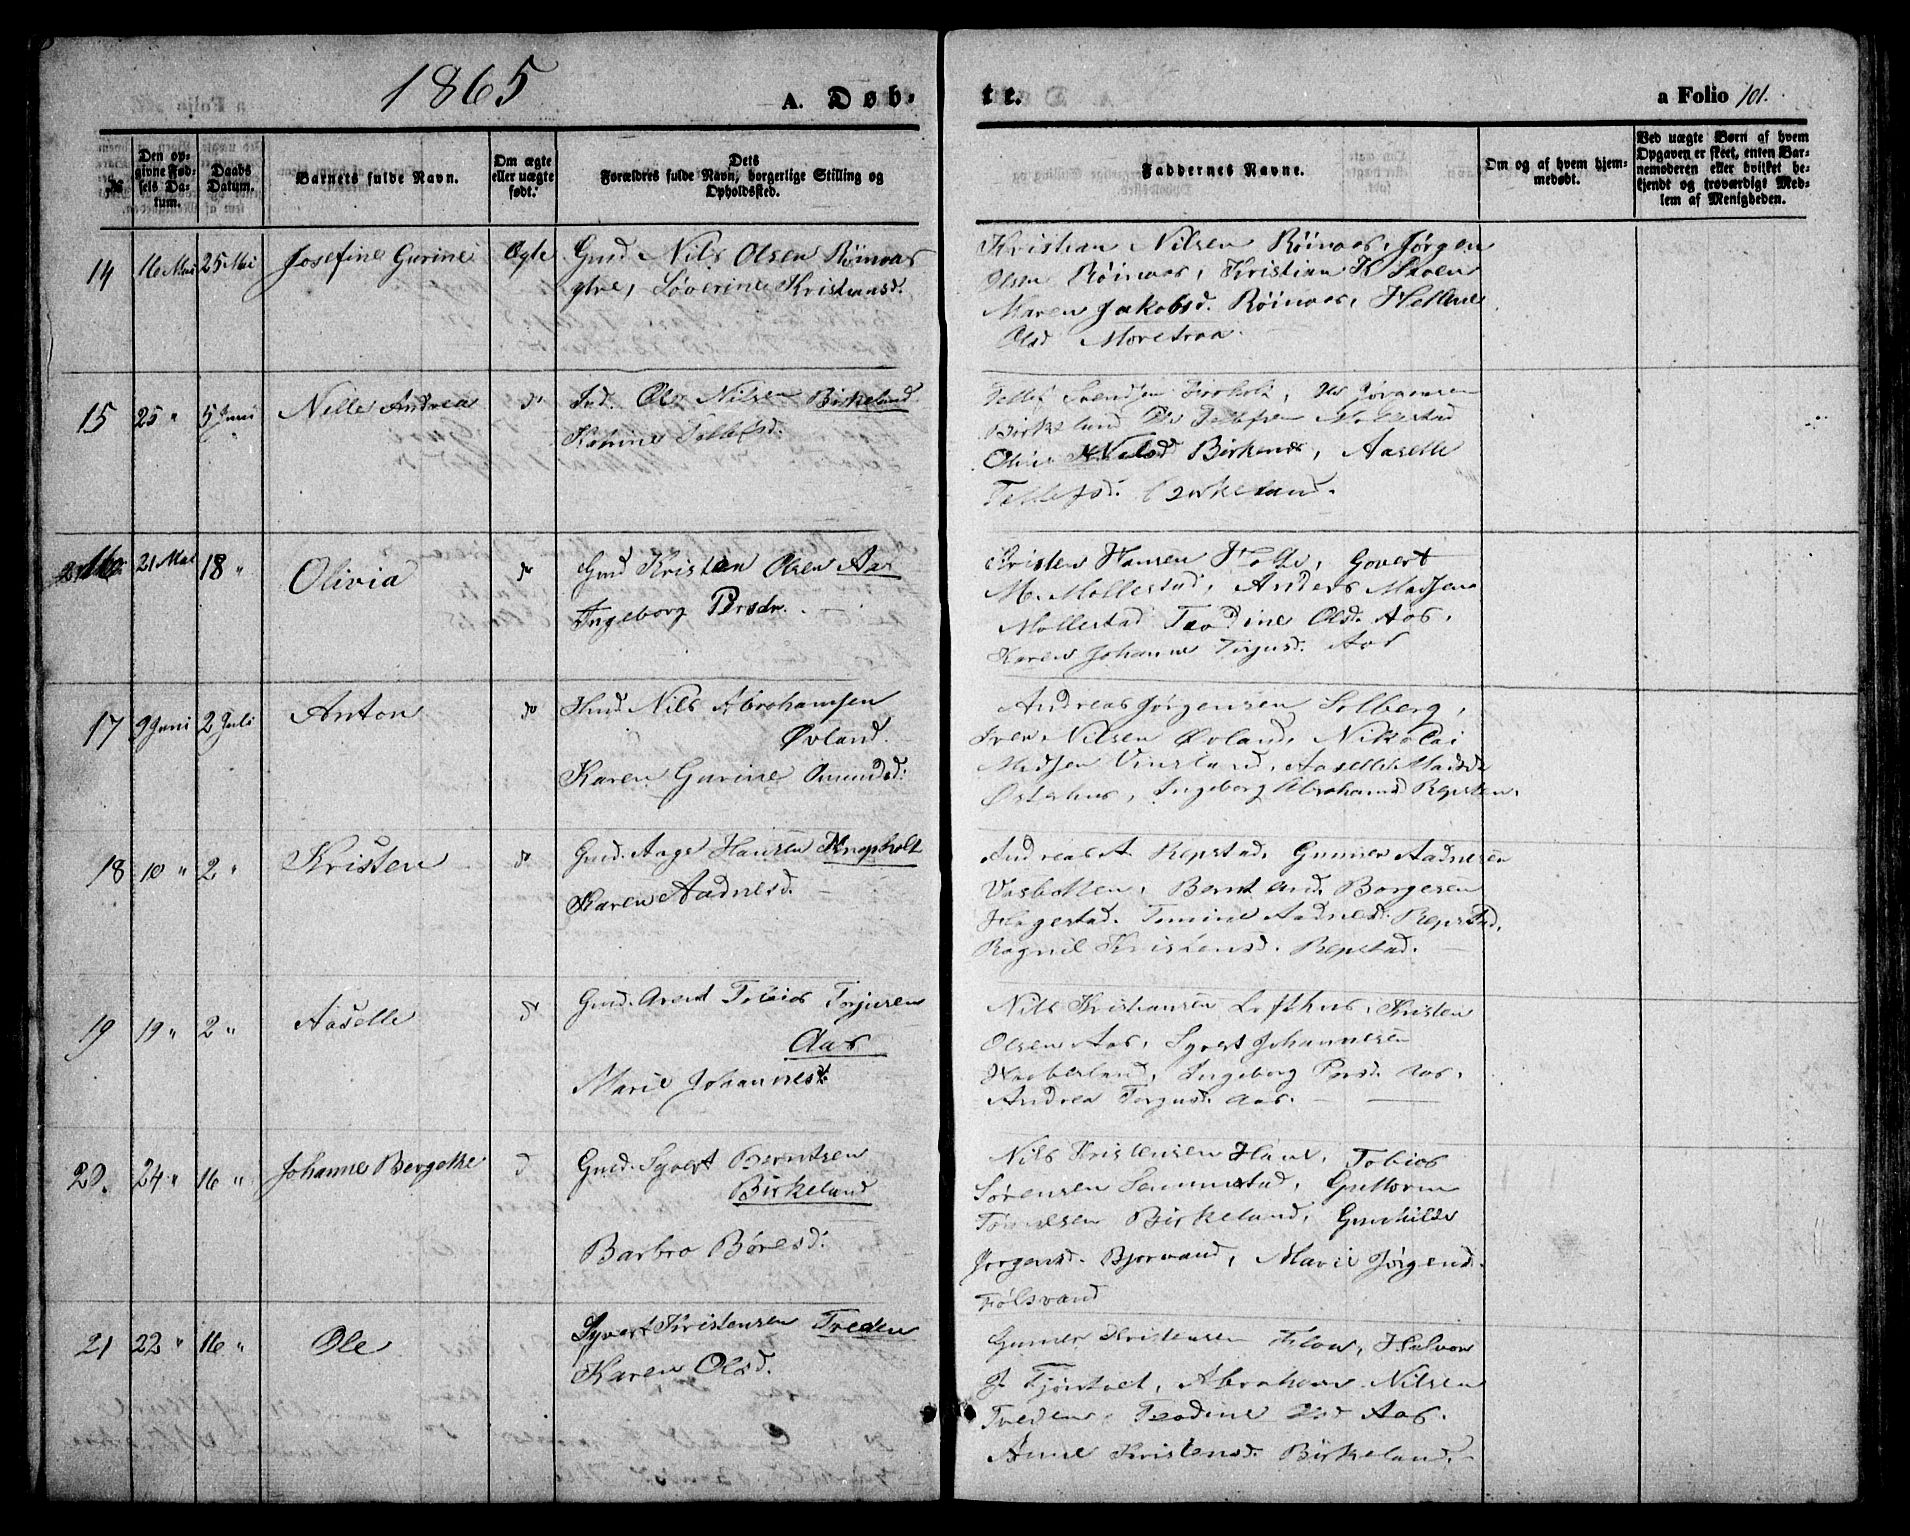 1865
A. Døb-
te.
a Folio 101.
№
Den op-
givne Fød-
sels Da-
tum.
Daabs
Datum.
Barnets fulde Navn.
Om ægte
eller uægte
født.
Dets
Forældres fulde Navn, borgerlige Stilling og
Opholdssted.
Faddernes Navne.
Om og af hvem hjem-
medøbt.
Ved uægte Børn af hvem
Opgaven er skeet, enten Bar-
nemoderen eller hvilket be-
kjendt og troværdigt Med-
lem af Menigheden.
14 16 Mai 25 Mai Josefine Gurine Ægte Gmd Nils Olsen Röinaas
gtve, Söverine Kristensd.
Kristian Nilsen Röinaas, Jörgen
Olsen Röinaas, Kristian K
Maren Jakobsd. Röinaas, Hellene
Olsd Moretraa.
15 25 " 5 Juni Nelle Andrea do Ind. Ole Nilsen Birkeland
Tellefsd.
Tellef Svendsen Jörgensen
Birkeland Ole Tellefsen Mollestad
Nilsd Birkenes, Aaselle
Tellefsd. Birkeland.
16 21 Mai 18 " Olivia do Gmd Kristen Olsen Aas
Ingeborg Persdr. -
Kristen Hansen Govert
M. Mollestad, Anders Madsen
Mollestad Teodine Olsd. Aas,
Karen Johanne Torjusd. Aas
17 9 Juni 2 Juli Anton do Hmd. Nils Abrahamsen
Øvland.
Karen Gurine Omundsd.
Andreas Jörgensen Solberg,
Iver Nilsen Øvland, Nikolai
Madsen Vinsland, Aaselle Madsd
Østerhus, Ingeborg Abrahamsd Repsten.
18 10 " 2 " Kristen do Gmd. Aage Hansen Knapholt
Karen Aadnesd.
Andreas A. Repstad, Gunner Aadnesen
Vasbotten, Berntand. Borgesen
Hagestad. Tomine Aadnesd. Repstad,
Ragnil Kristensd. Repstad.
19 19 " 2 " Aaselle do Gmd. Arent Tobias Torjusen
Aas
Marie Johannesd.
Nils Kristiansen Lofthus, Kristen
Olsen Aas, Syvert Johannesen
Haaberland, Ingeborg Persd. Aas,
Andrea Torgusd. Aas. -
20. 24 " 16 " Johanne Bergete d Gmd. Syvert Berntsen
Birkeland
Barbro Børesd.
Nils Kristensen Tobias
Sørensen Senumstad, Guttorm
Tönnesen Birkeland, Gunhilde
Jørgensd. Bjorvand, Marie Jörgensd.
Følsvand
21 22 " 16 " Ole Syvert Kristensen Treden
Karen Olsd.
Gunner Kristensen Flaa, Halvor
J. Tjöntvet, Abraham Nilsen
Treden, Teodine Olsd Aas.
Anne Kristensd. Birkeland.